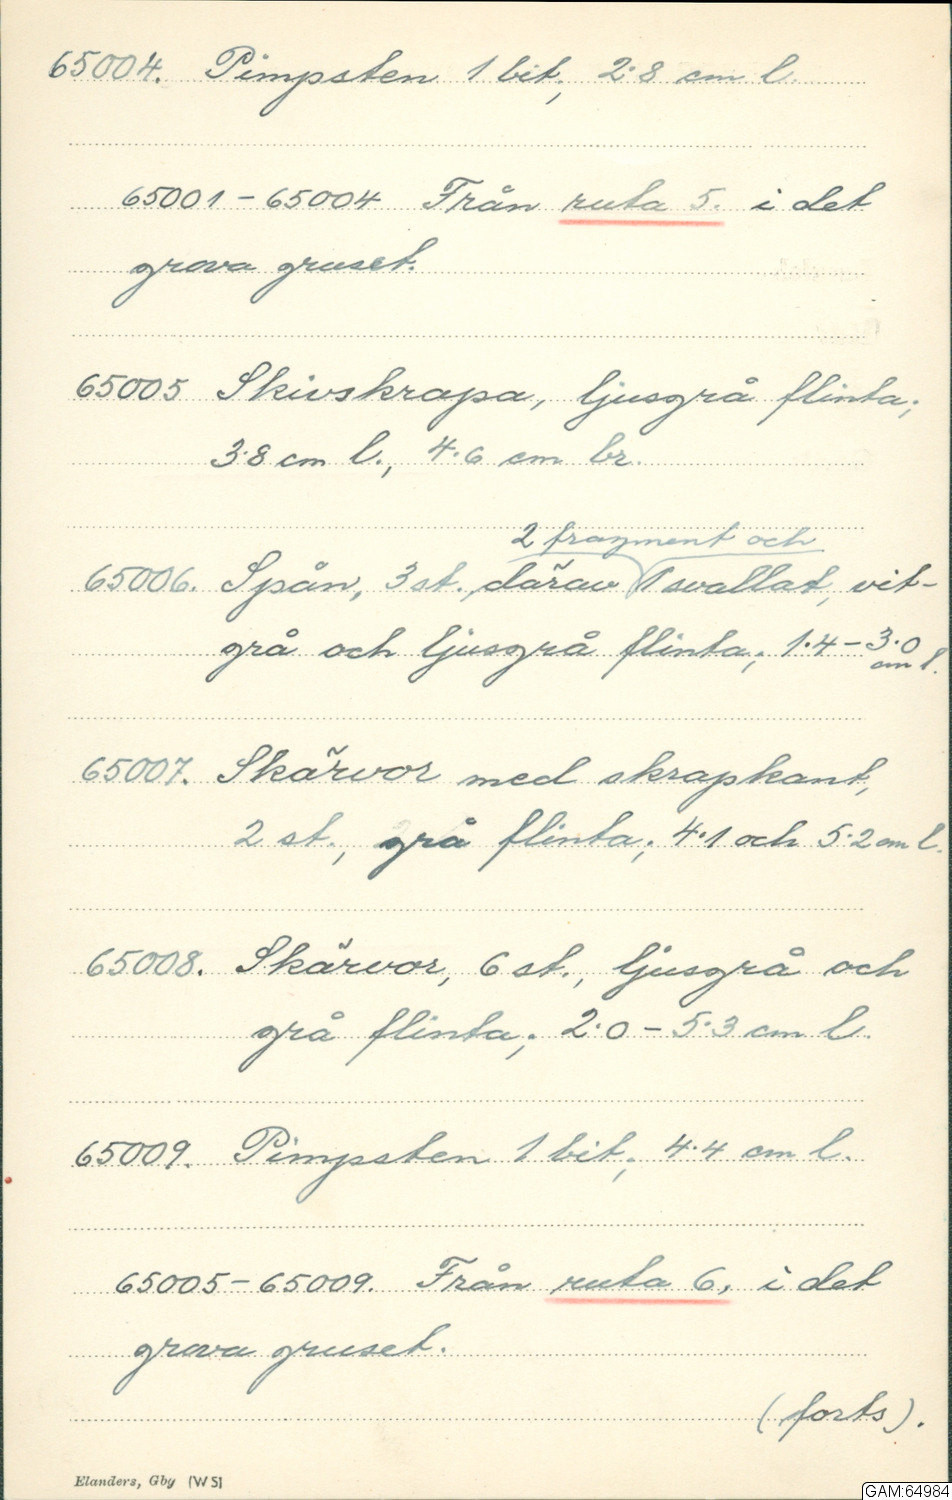 65004. Pimpsten 1 bit; 2·8 cm l.
65001 - 65004 Från ruta 5. i det
grova gruset.
65005 Skivskrapa, ljusgrå flinta;
3·8 cm l., 4·6 cm br.
2 fragment och
65006. Spån, 3 st., därav 1 svallat, vit-
grå och ljusgrå flinta; 1·4 - 3·0
cm l.
65007. Skärvor med skrapkant,
2 st., grå flinta; 4·1 och 5·2 cm l.
65008. Skärvor, 6 st., ljusgrå och
grå flinta; 2·0 - 5·3 cm l.
65009. Pimpsten 1 bit; 4·4 cm l.
65005 - 65009. Från ruta 6, i det
grova gruset.
(forts).
Elanders, Gbg (W S)
GAM:64984